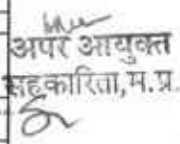 अपर आयुक्त
सहकारिता, म.प्र.